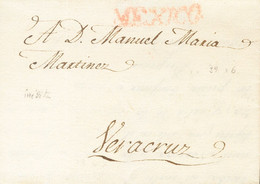 MEXICO
A D. Manuel Maria
Martinez
Veracruz